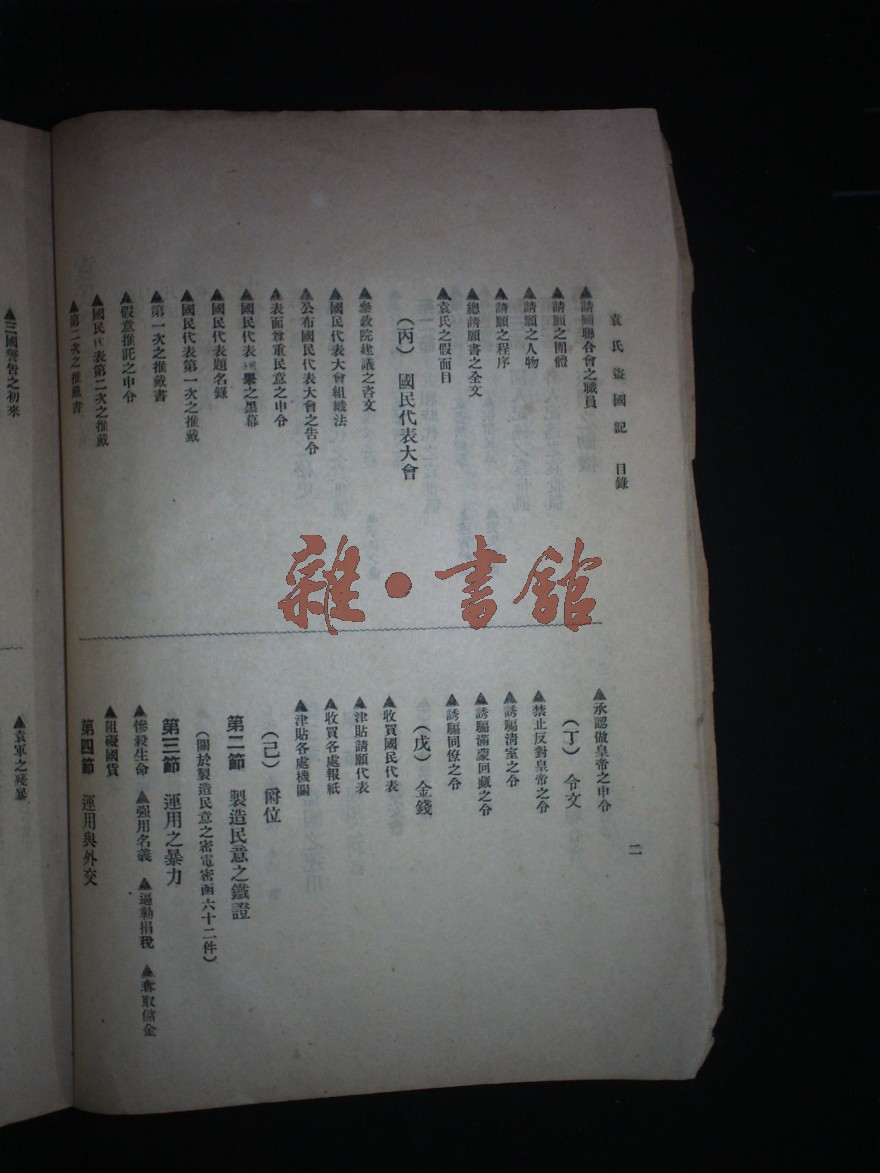 袁氏盜國記 目錄
二
▲請願聯合會之職員
▲請願之團體
▲請願之人物
▲請願之程序
▲總請願書之全文
▲袁氏之假面目
(丙) 國民代表大會
▲參政院建議之咨文
▲國民代表大會組織法
▲公布國民代表大會之告令
▲表面尊重民意之申令
▲國民代表 舉之黑幕
▲國民代表題名錄
▲國民代表第一次之推戴
▲第一次之推戴書
▲假意推託之申令
▲國民代表第二次之推戴
▲第二次之推戴書
▲承認做皇帝之申令
(丁) 令文
▲禁止反對皇帝之令
▲誘騙清室之令
▲誘騙滿蒙回藏之令
▲誘騙同僚之令
(戊) 金錢
▲收買國民代表
▲津貼請願代表
▲收買各處報紙
▲津貼各處機關
(己) 爵位
第二節 製造民意之鐵證
(關於製造民意之密電密函六十二件)
第三節 運用之暴力
▲慘殺生命 ▲強用名義 ▲逼勒捐稅 ▲奪取儲金
▲阻礙國貨
第四節 運用與外交
▲三國警告之初來
▲袁軍之殘暴
雜·書館